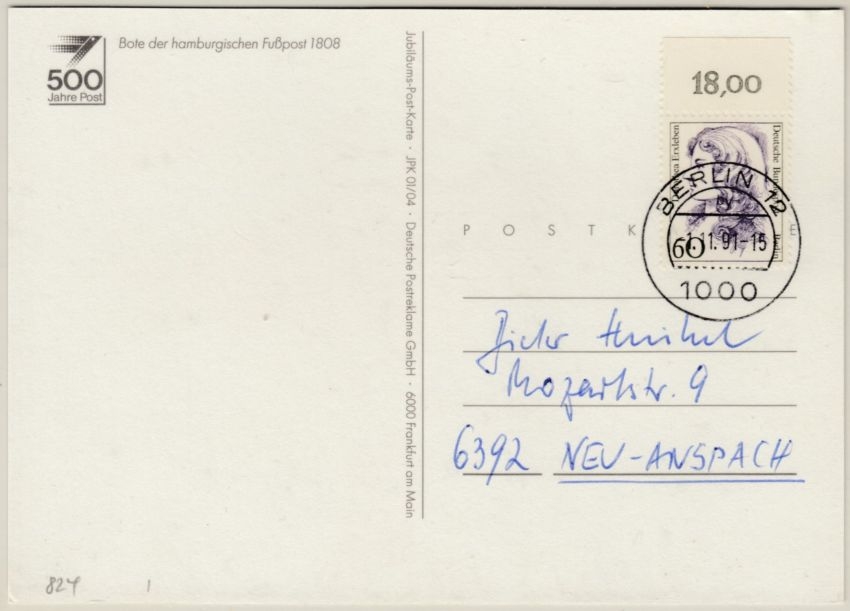 Bote der hamburgischen Fußpost 1808
500
Jahre Post
Jubiläums-Post-Karte · JPK 01/04 · Deutsche Postreklame GmbH · 6000 Frankfurt am Main
18,00
Erxleben
Deutsche Bun
Berlin
60
BERLIN 12
1.11.91-15
1000
POSTK E
Mozartstr. 9
6392 NEU-ANSPACH
824 1